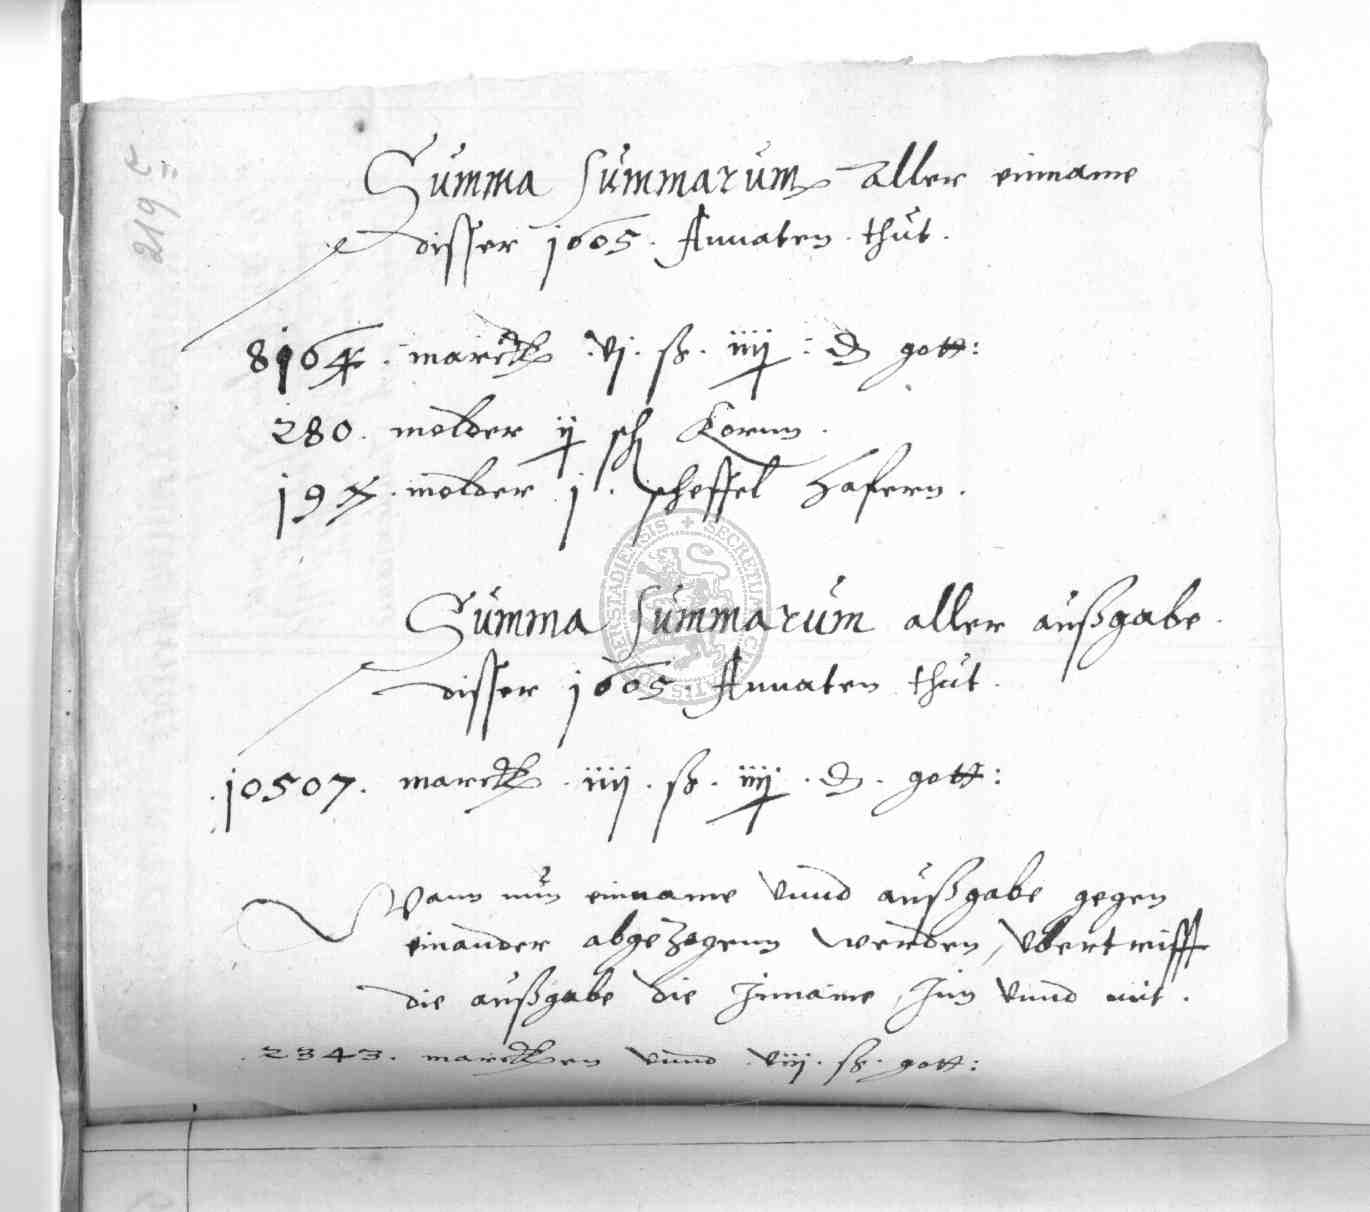 219
Summa Summarum aller einname
disser 1605. Annaten thut.
8164. marck vj. ß. iiij. d gott:
280. molder ij sch Kornn.
molder j. scheffel Hafern.
Summa Summarum aller außgabe
disser 1605. Annaten thut.
10507. marck. iiij. ß. iiij. d. gott:
Wann nun einname vnnd außgabe gegen
einander abgezogenn werden, vbertrifft
die außgabe die Inname, Inn vnnd mit.
2343. marcken vnnd viij. ß. gott:
SECRETUM